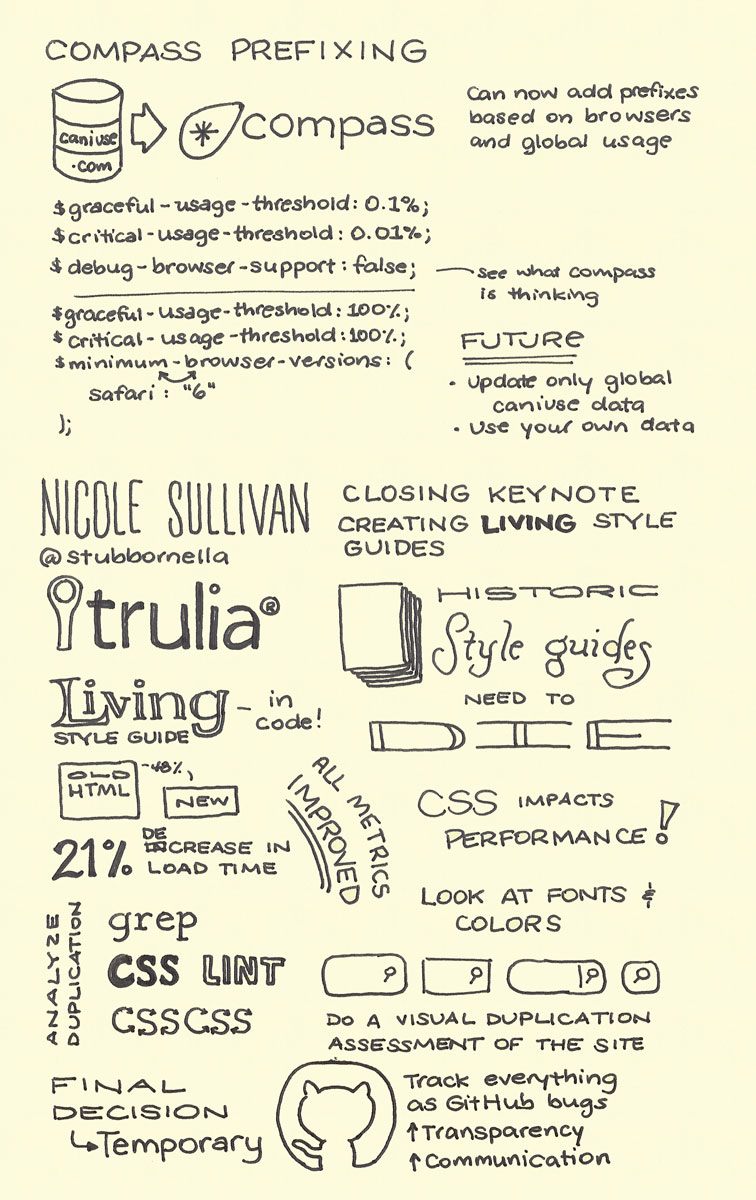 COMPASS PREFIXING
caniuse
.com
compass
Can now add prefixes
based on browsers
and global usage
$graceful-usage-threshold: 0.1%;
$critical-usage-threshold: 0.01%;
$debug-browser-support: false;
see what compass
is thinking
$graceful-usage-threshold: 100%;
$critical-usage-threshold: 100%;
$minimum-browser-versions: (
safari: "6"
);
FUTURE
• Update only global
caniuse data
• Use your own data
NICOLE SULLIVAN
@stubbornella
CLOSING KEYNOTE
CREATING LIVING STYLE
GUIDES
trulia®
HISTORIC
Style guides
NEED TO
DIE
Living - in
code!
STYLE GUIDE
OLD
HTML
-48%
NEW
21% DECREASE IN
LOAD TIME
ALL METRICS
IMPROVED
CSS IMPACTS
PERFORMANCE!
LOOK AT FONTS &
COLORS
ANALYZE
DUPLICATION
grep
CSS LINT
CSSCSS
DO A VISUAL DUPLICATION
ASSESSMENT OF THE SITE
FINAL
DECISION
↳Temporary
Track everything
as GitHub bugs
↑Transparency
↑Communication